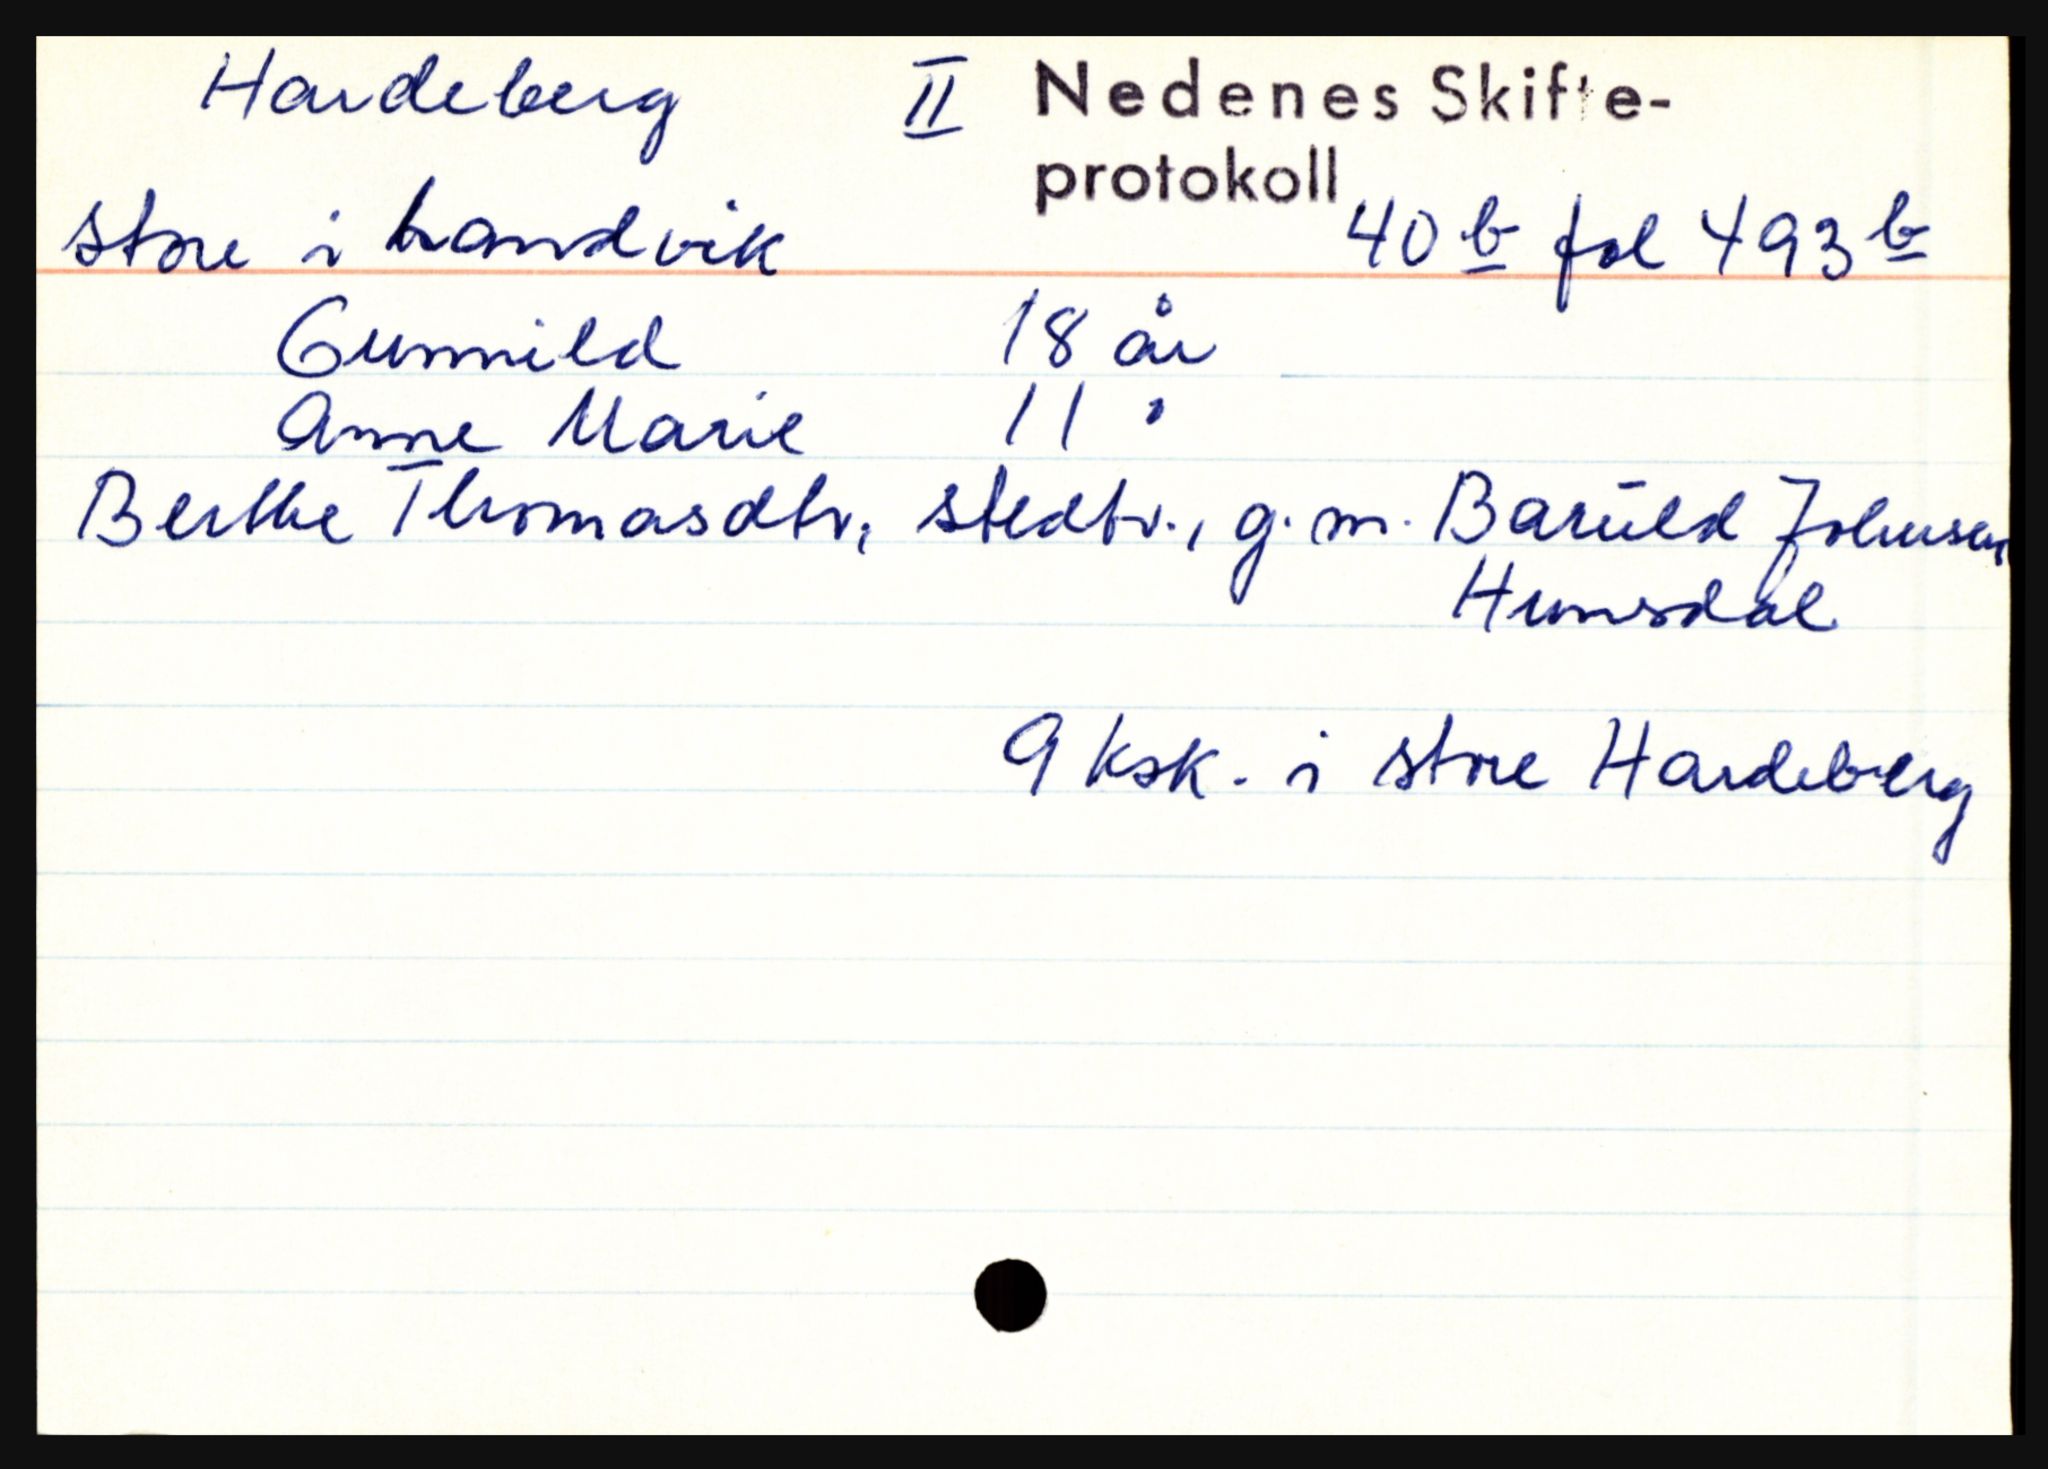 Hardeberg II Nedenes Skifte-
protokoll
store i Landvik 40 b fol 493 b
Gunnild 18 år
Anne Marie 11 "
Berthe Thomasdtr., stedtr., g.m. Barùld Johnsen
Hunsdal
9 ksk. i store Hardeberg